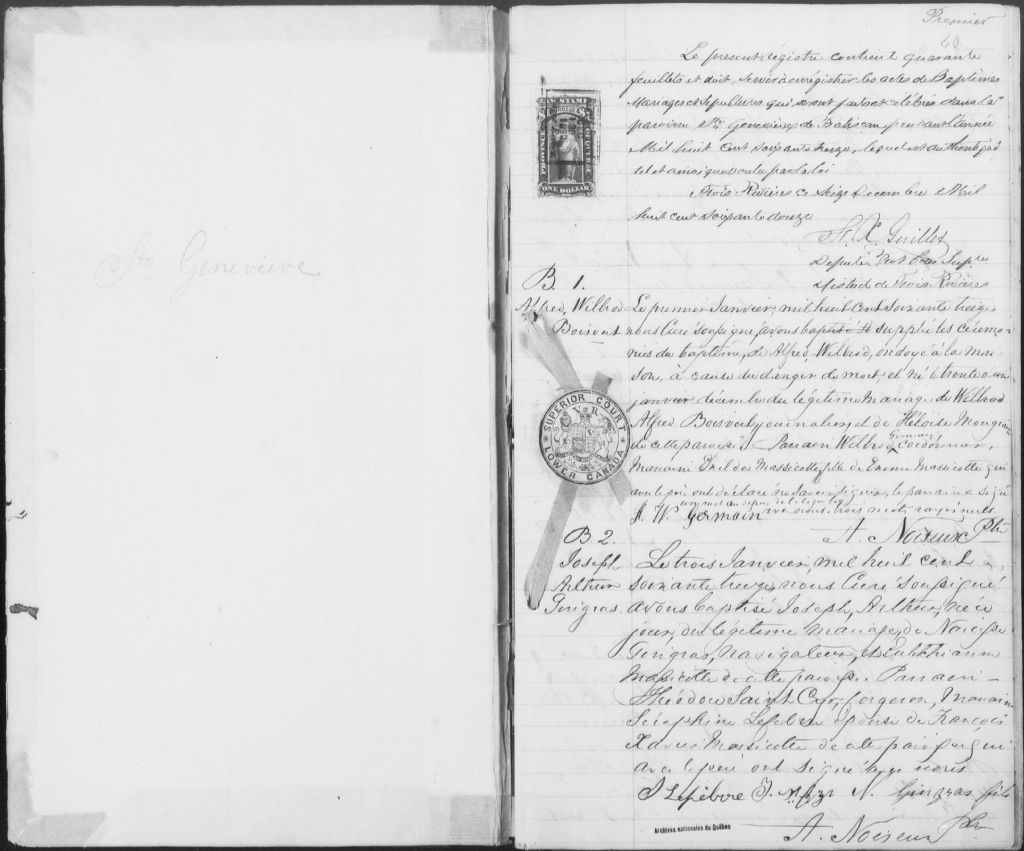 Ste Geneviève
Premier
40
Le present registre contient quarante
feuillets et doit servir à enrégistrer les actes de Baptêmes
Mariages et Sépultures qui seront faits et célébrés dans la
paroisse Ste Geneviève de Batiscan pendant l'année
Mil huit cent soixante treize, lequel est authentiqué
tel et ainsi que voulu par la loi
Trois Rivières ce Seize Decembre Mil
huit cent soixante douze
LAW STAMP
PROVINCE QUEBEC
ONE DOLLAR
F. X. Guillet
Deputé Prot Cour Supre
District de Trois Rivières
B. 1.
Alfred, Wilbrod
Boisvert
Le premier Janvier, mil huit cent soixante treize
nous Curé soussigné, avons baptisé A suppléé les cérémo-
nies du baptême, de Alfred, Wilbrod, ondoyé à la mai-
son, à cause du danger de mort, et né le trente et un
janvier décembre du légitime mariage de Wilbrod
Alfred Boisvert, journalier, et de Héloïse Mongrain
de cette paroisse. Parrain Wilbrod Germain Cordonnier,
Marraine Exilda Massicotte, fille de Massicotte qui
avec le père ont déclaré ne savoir signer, le parrain a signé
avec nous. trois mots rayés nuls.
J. W. Germain
A. Noiseux Ptre
SUPERIOR COURT
LOWER CANADA
V R
B 2.
Joseph
Arthur
Gingras
Le trois Janvier, mil huit cent
soixante treize, nous Curé soussigné
avons baptisé Joseph, Arthur, né ce
jour, du légitime mariage de Narcisse
Gingras, navigateur, et
Massicotte de cette paroisse. Parrain
Théodore Saint Cyr, forgeron, Marraine
Séraphine Lefebvre épouse de François
Xavier Massicotte de cette paroisse qui
avec le père ont signé avec nous
S Lefebvre N. Gingras fils
A. Noiseux Ptre
Archives nationales du Québec